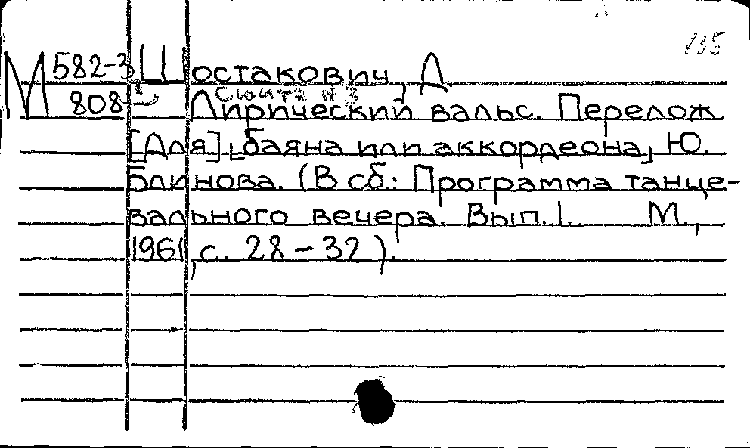 115
М 582-3 Шостакович, Д
Сюита № 2
808 Лирический вальс. Перелож
[Для] баяна или аккордеона, Ю.
Блинова. (В сб.: Программа танце-
вального вечера. Вып. 1. М.,
1961, с. 28-32).